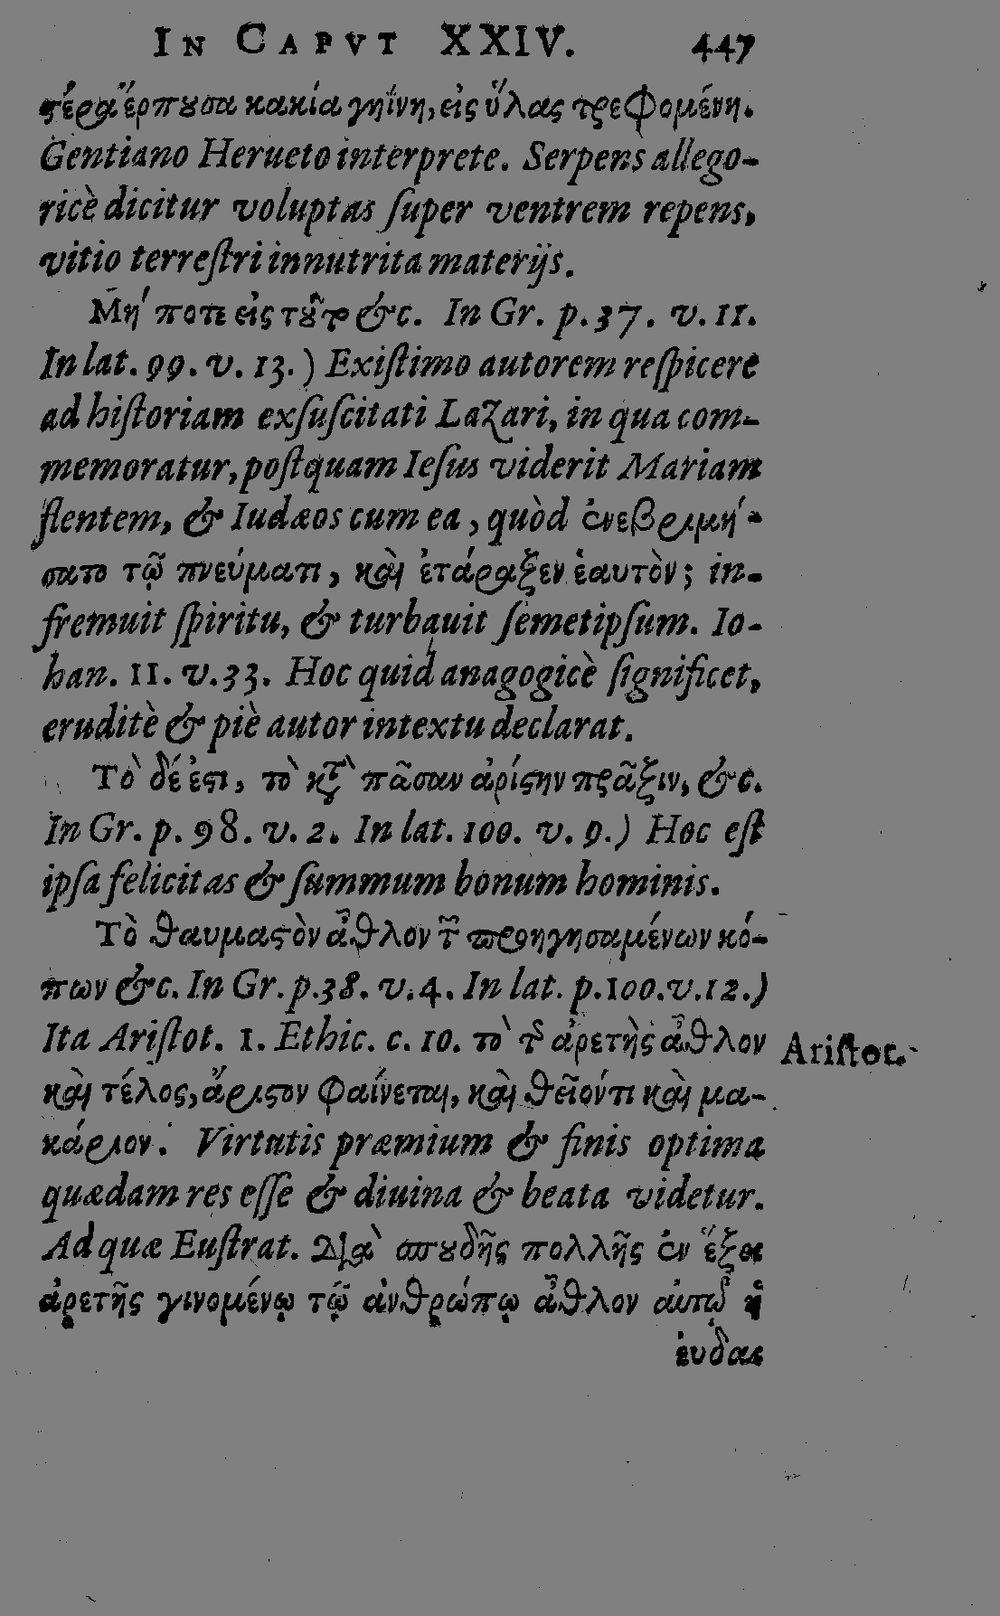 IN CAPVT XXIV. 447
ϛέρα ἕρπουσα κακία γηΐνη, εἰς ὕλας τρεφομένη.
Gentiano Herueto interprete. Serpens allego-
ricè dicitur voluptas ſuper ventrem repens,
vitio terreſtri innutrita materijs.
Μή ποτε εἰς τοῦτο &c. In Gr. p. 37. v. 11.
In lat. 99. v. 13.) Exiſtimo autorem reſpicere
ad hiſtoriam exſuſcitati Lazari, in qua com-
memoratur, poſtquam Ieſus viderit Mariam
flentem, & Iudæos cum ea, quòd ἐνεβριμή-
σατο τῷ πνεύματι, καὶ ἐτάραξεν ἑαυτὸν; in-
fremuit ſpiritu, & turbauit ſemetipſum. Io-
han. 11. v. 33. Hoc quid anagogicè ſignificet,
eruditè & piè autor in textu declarat.
Τὸ δέ ἐϛι, τὸ κατὰ πᾶσαν ἀρίϛην πρᾶξιν, &c.
In Gr. p. 98. v. 2. In lat. 100. v. 9.) Hoc eſt
ipſa felicitas & ſummum bonum hominis.
Τὸ θαυμαϛὸν ἆθλον τῶν προηγησαμένων κό-
πων &c. In Gr. p. 38. v. 4. In lat. p. 100. v. 12.)
Ita Ariſtot. 1. Ethic. c. 10. τὸ τῆς ἀρετὴς ἆθλον
Ariſtot.
καὶ τέλος, ἄριϛον φαίνεται, καὶ θεῖόν τι καὶ μα-
κάριον. Virtutis præmium & finis optima
quædam res eſſe & diuina & beata videtur.
Ad quæ Euſtrat. Διὰ σπουδῆς πολλῆς ἐν ἕξει
ἀρετῆς γινομένῳ τῷ ἀνθρώπῳ ἆθλον αὐτῷ ἡ
ἐυδαι